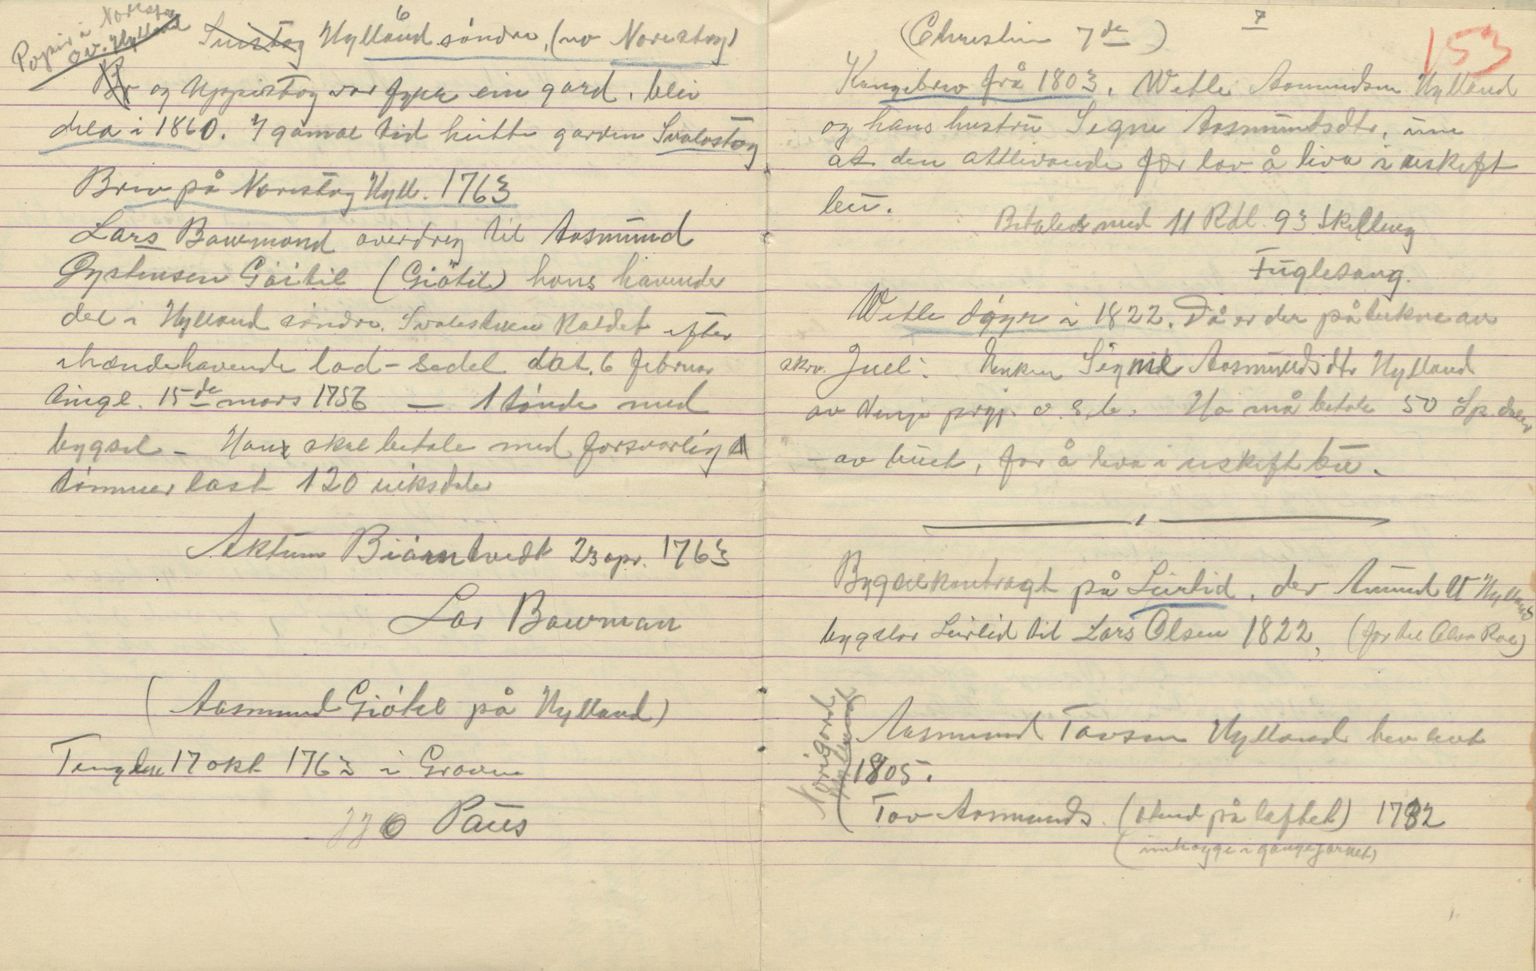 Papir i Norestog
av. Hylland
6
Suistog Hylland søndre, (no Norestog)
Br og Uppistog var fyrr ein gard, blei
dela i 1860. I gamal tid heitte garden Svalestog
Brev på Norestog Hyll. 1763
Lars Bowmand overdreg til Aasmund
Øystensen Gøitil (Giøtil) hans havende
del i Hylland søndre. Svaleskuen kaldet efter
ihændehavende lod-sedel dat. 6 februar
tingl. 15de mars 1756 — 1 tønde med
bygsel — Han skal betale med forsvarlig
tømmerlast 120 riksdaler
Aktum Biørntvedt 23 apr. 1763
Lar Bowman
(Aasmund Giøtil på Hylland)
Tinglese 17 okt 1763 i Groven
Paus
7
153
(Christian 7de)
Kongebrev frå 1803. Wetle Aasmundsen Hylland
og hans hustru Signe Aasmundsdtr. um
at den attlivande fær lov å liva i uskift
bu.
Betalede med 11 Rdl. 93 skilling
Fuglesang.
Wetle døyr i 1822. Då er der påteikna av
skrv. Juel: Enken Signe Aasmundsdtr Hylland
av Venje prgj. o.s.b. Ho må betale 50 Sp. daler
- av buet, for å leva i uskift bu.
Bygselkontragt på Leirlid, der Aamund Hylland
bygslar Leirlid til Lars Olsen 1822, (for til Olav Roe)
Norigard
Hylland
Aasmund Tovsen Hylland hev levt
1805.
Tov Aasmunds. (stend på loftet) 1782
(innhoggje i gangjarnet)